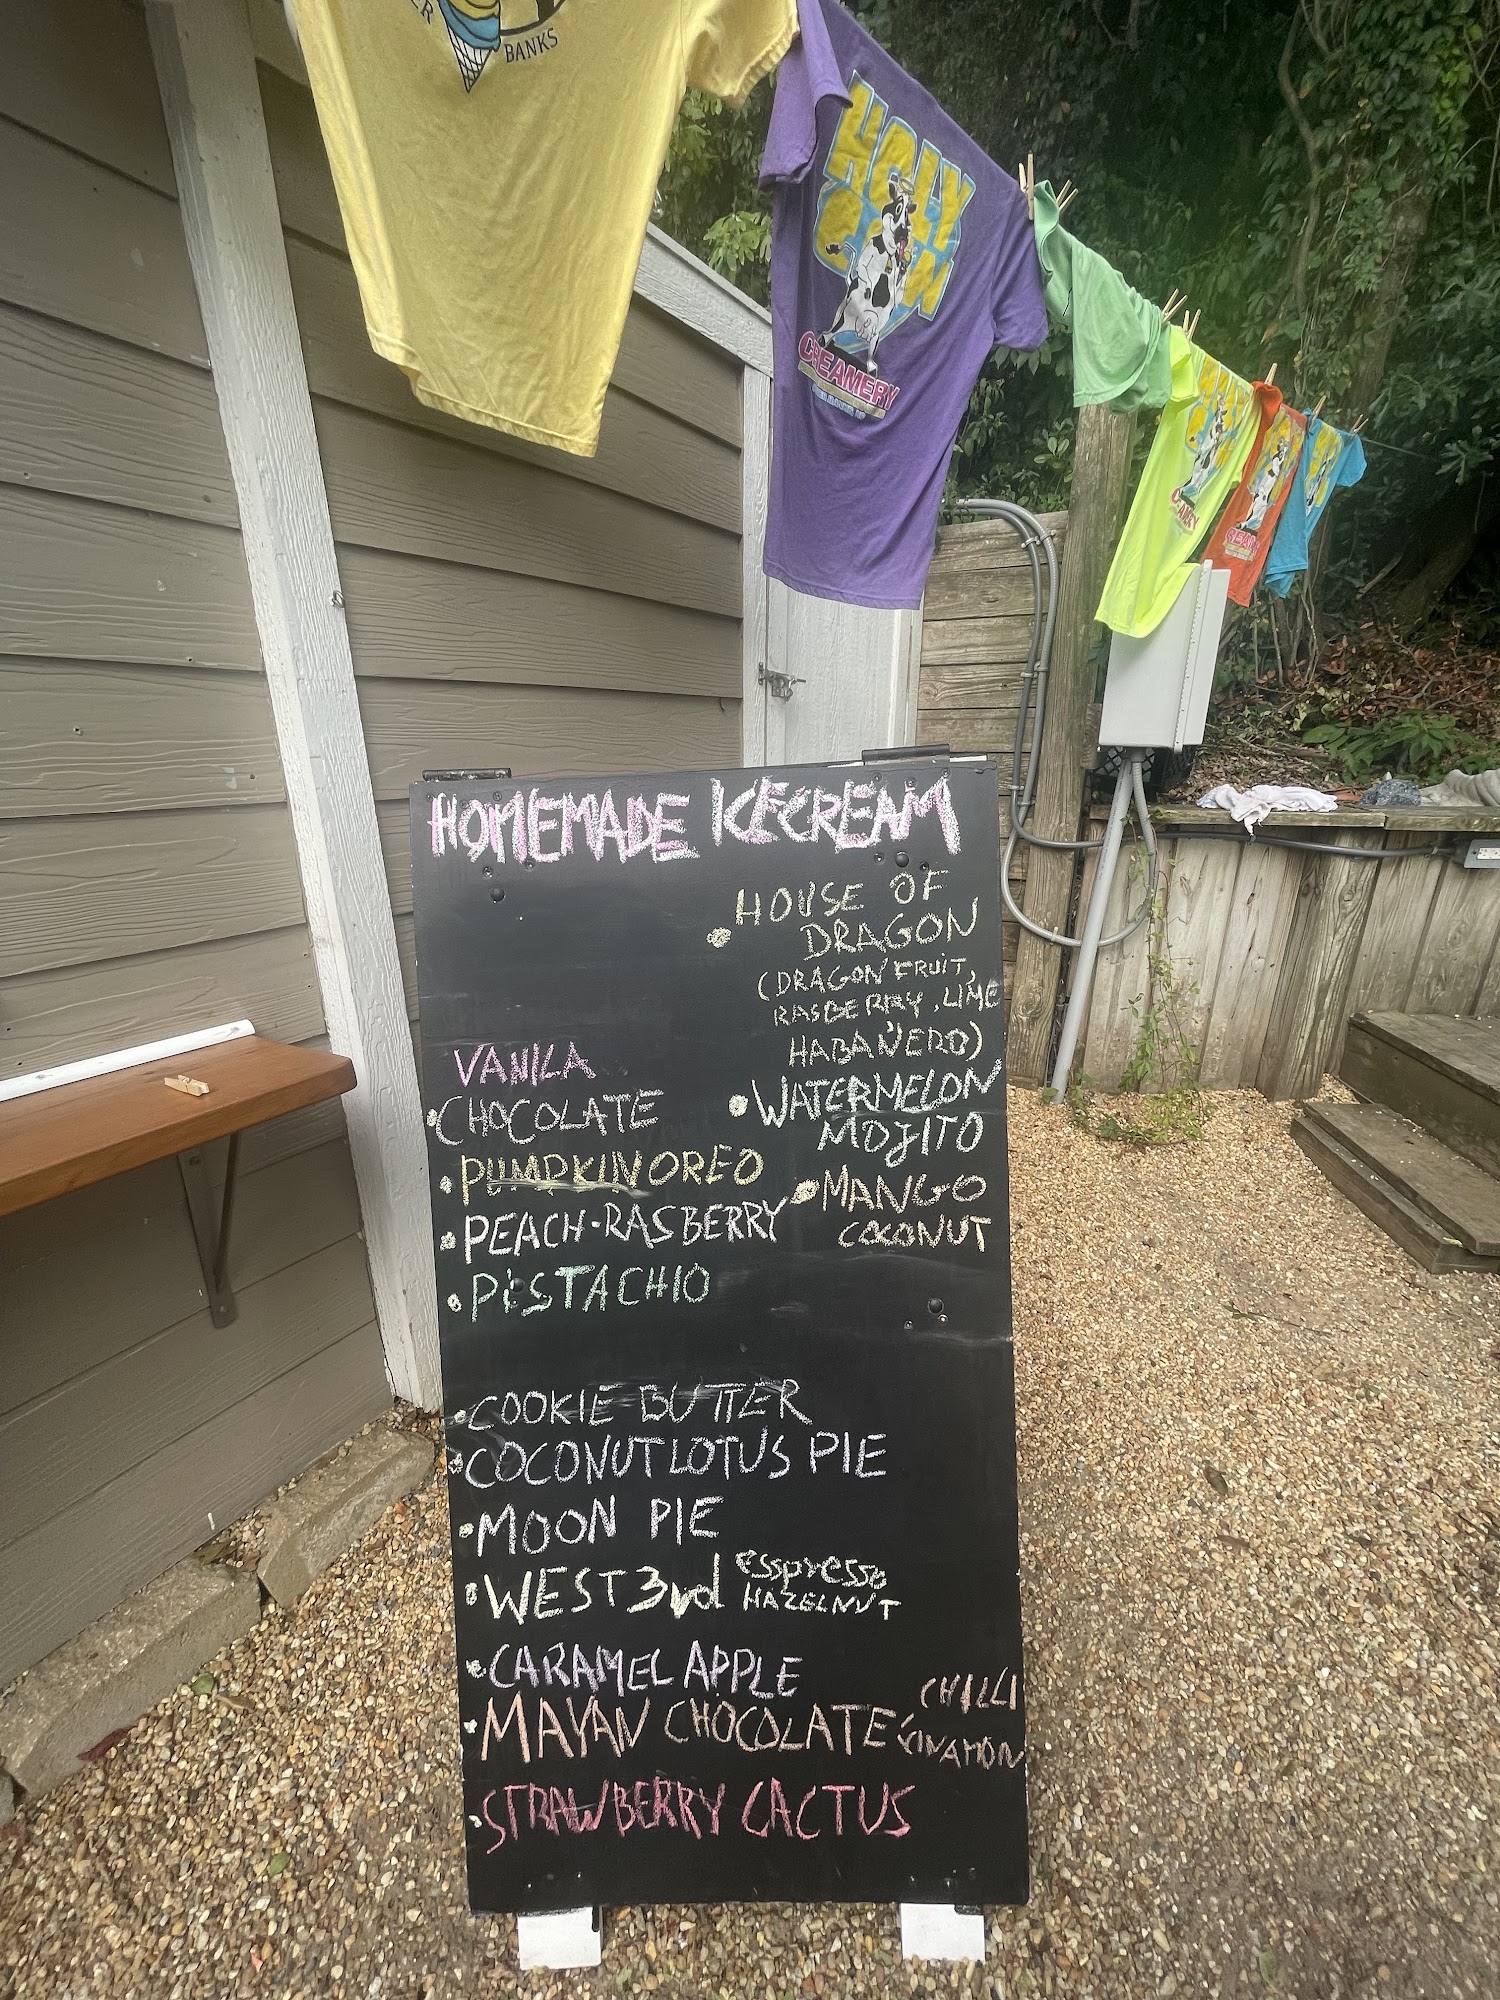 BANKS
HOLY
COW
CREAMERY
HOMEMADE ICECREAM
VANILA
CHOCOLATE
PUMPKIN OREO
PEACH-RASBERRY
PISTACHIO
HOUSE OF
DRAGON
(DRAGON FRUIT,
RASBERRY, LIME
HABAÑERO)
WATERMELON
MOJITO
MANGO
COCONUT
COOKIE BUTTER
COCONUT LOTUS PIE
MOON PIE
WEST 3rd esspresso
HAZELNUT
CARAMEL APPLE
MAYAN CHOCOLATE CHILLI
CINAMON
STRAWBERRY CACTUS